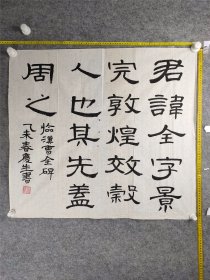 君諱全字景
完敦煌效穀
人也其先蓋
周之
臨漢曹全碑
乙未春慶生書